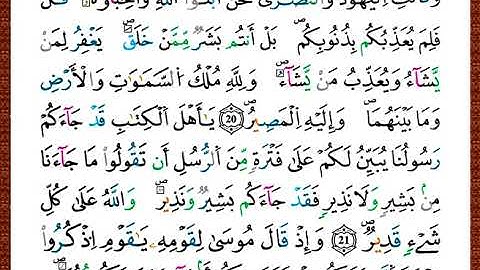 وَقَالَتِ اِ۬لْيَهُودُ وَالنَّصَٰرَىٰ نَحْنُ أَبْنَٰٓؤُاْ اُ۬للَّهِ وَأَحِبَّٰٓؤُهُۥ قُلْ
فَلِمَ يُعَذِّبُكُم بِذُنُوبِكُمۖ بَلْ أَنتُم بَشَرٞ مِّمَّنْ خَلَقَۖ يَغْفِرُ لِمَنْ
يَّشَآءُ وَيُعَذِّبُ مَنْ يَّشَآءُۖ وَلِلهِ مُلْكُ اُ۬لسَّمَٰوَٰتِ وَالْأَرْضِ
وَمَا بَيْنَهُمَاۖ وَإِلَيْهِ اِ۬لْمَصِيرُۖ 20 يَٰٓأَهْلَ اَ۬لْكِتَٰبِ قَدْ جَآءَكُمْ
رَسُولُنَا يُبَيِّنُ لَكُمْ عَلَىٰ فَتْرَةٖ مِّنَ اَ۬لرُّسُلِ أَن تَقُولُواْ مَا جَآءَنَا
مِنۢ بَشِيرٖ وَلَا نَذِيرٖ فَقَدْ جَآءَكُم بَشِيرٞ وَنَذِيرٞۖ وَاللَّهُ عَلَىٰ كُلِّ
شَےْءٖ قَدِيرٞۖ 21 وَإِذْ قَالَ مُوسَىٰ لِقَوْمِهِۦ يَٰقَوْمِ اِ۟ذْكُرُواْ